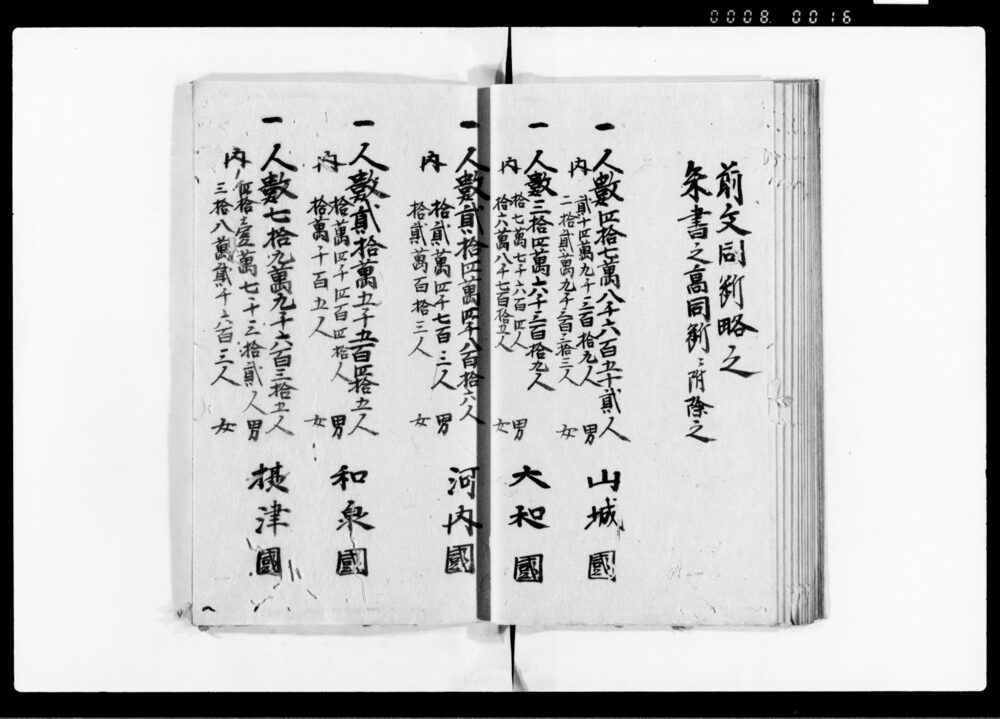 0008 0016
前文同断略之
朱書之高同断ニ附除之
一人数四拾七萬八千六百五十貳人 山城國
内 貳十四萬九千三百拾九人 男
二拾貳萬九千三百三拾三人 女
一人數三拾四萬六千三百拾九人 大和國
内 拾七萬七千六百四人 男
拾六萬八千七百拾五人 女
一人數貳拾四萬四千八百拾六人 河内國
内 拾貳萬四千七百三人 男
拾貳萬百拾三人 女
一人數貳拾萬五千五百四拾五人 和泉國
内 拾萬四千四百四拾人 男
拾萬千百五人 女
一人數七拾九萬九千六百三拾五人 摂津國
内 四拾壹萬七千三拾貳人 男
三拾八萬貳千六百三人 女